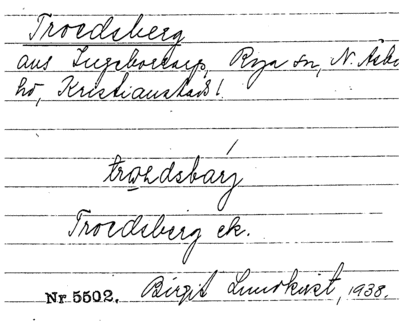 Troedsberg
aus Ingeborrarp, Rya sn, N. Åsbo
hd, Kristianstads l.
Troedsberg ek.
Nr 5502. Birgit Lundkvist, 1938.